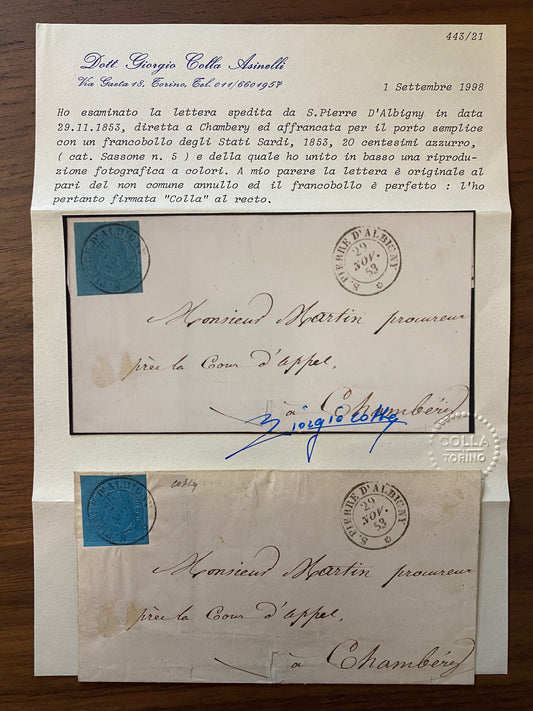 443/21
Dott. Giorgio Colla Asinelli
Via Gaeta 18, Torino, Tel. 011/6601957
1 Settembre 1998
Ho esaminato la lettera spedita da S.Pierre D'Albigny in data
29.11.1853, diretta a Chambery ed affrancata per il porto semplice
con un francobollo degli Stati Sardi, 1853, 20 centesimi azzurro,
( cat. Sassone n. 5 ) e della quale ho unito in basso una riprodu-
zione fotografica a colori. A mio parere la lettera è originale al
pari del non comune annullo ed il francobollo è perfetto : l'ho
pertanto firmata "Colla" al recto.
S. PIERRE D'ALBIGNY
S. PIERRE D'ALBIGNY
29
NOV.
53
Monsieur Martin procureur
près la Cour d'appel,
à Chambéry
Giorgio Colla
COLLA
TORINO
Colla
S. PIERRE D'ALBIGNY
S. PIERRE D'ALBIGNY
29
NOV.
53
Monsieur Martin procureur
près la Cour d'appel,
à Chambéry